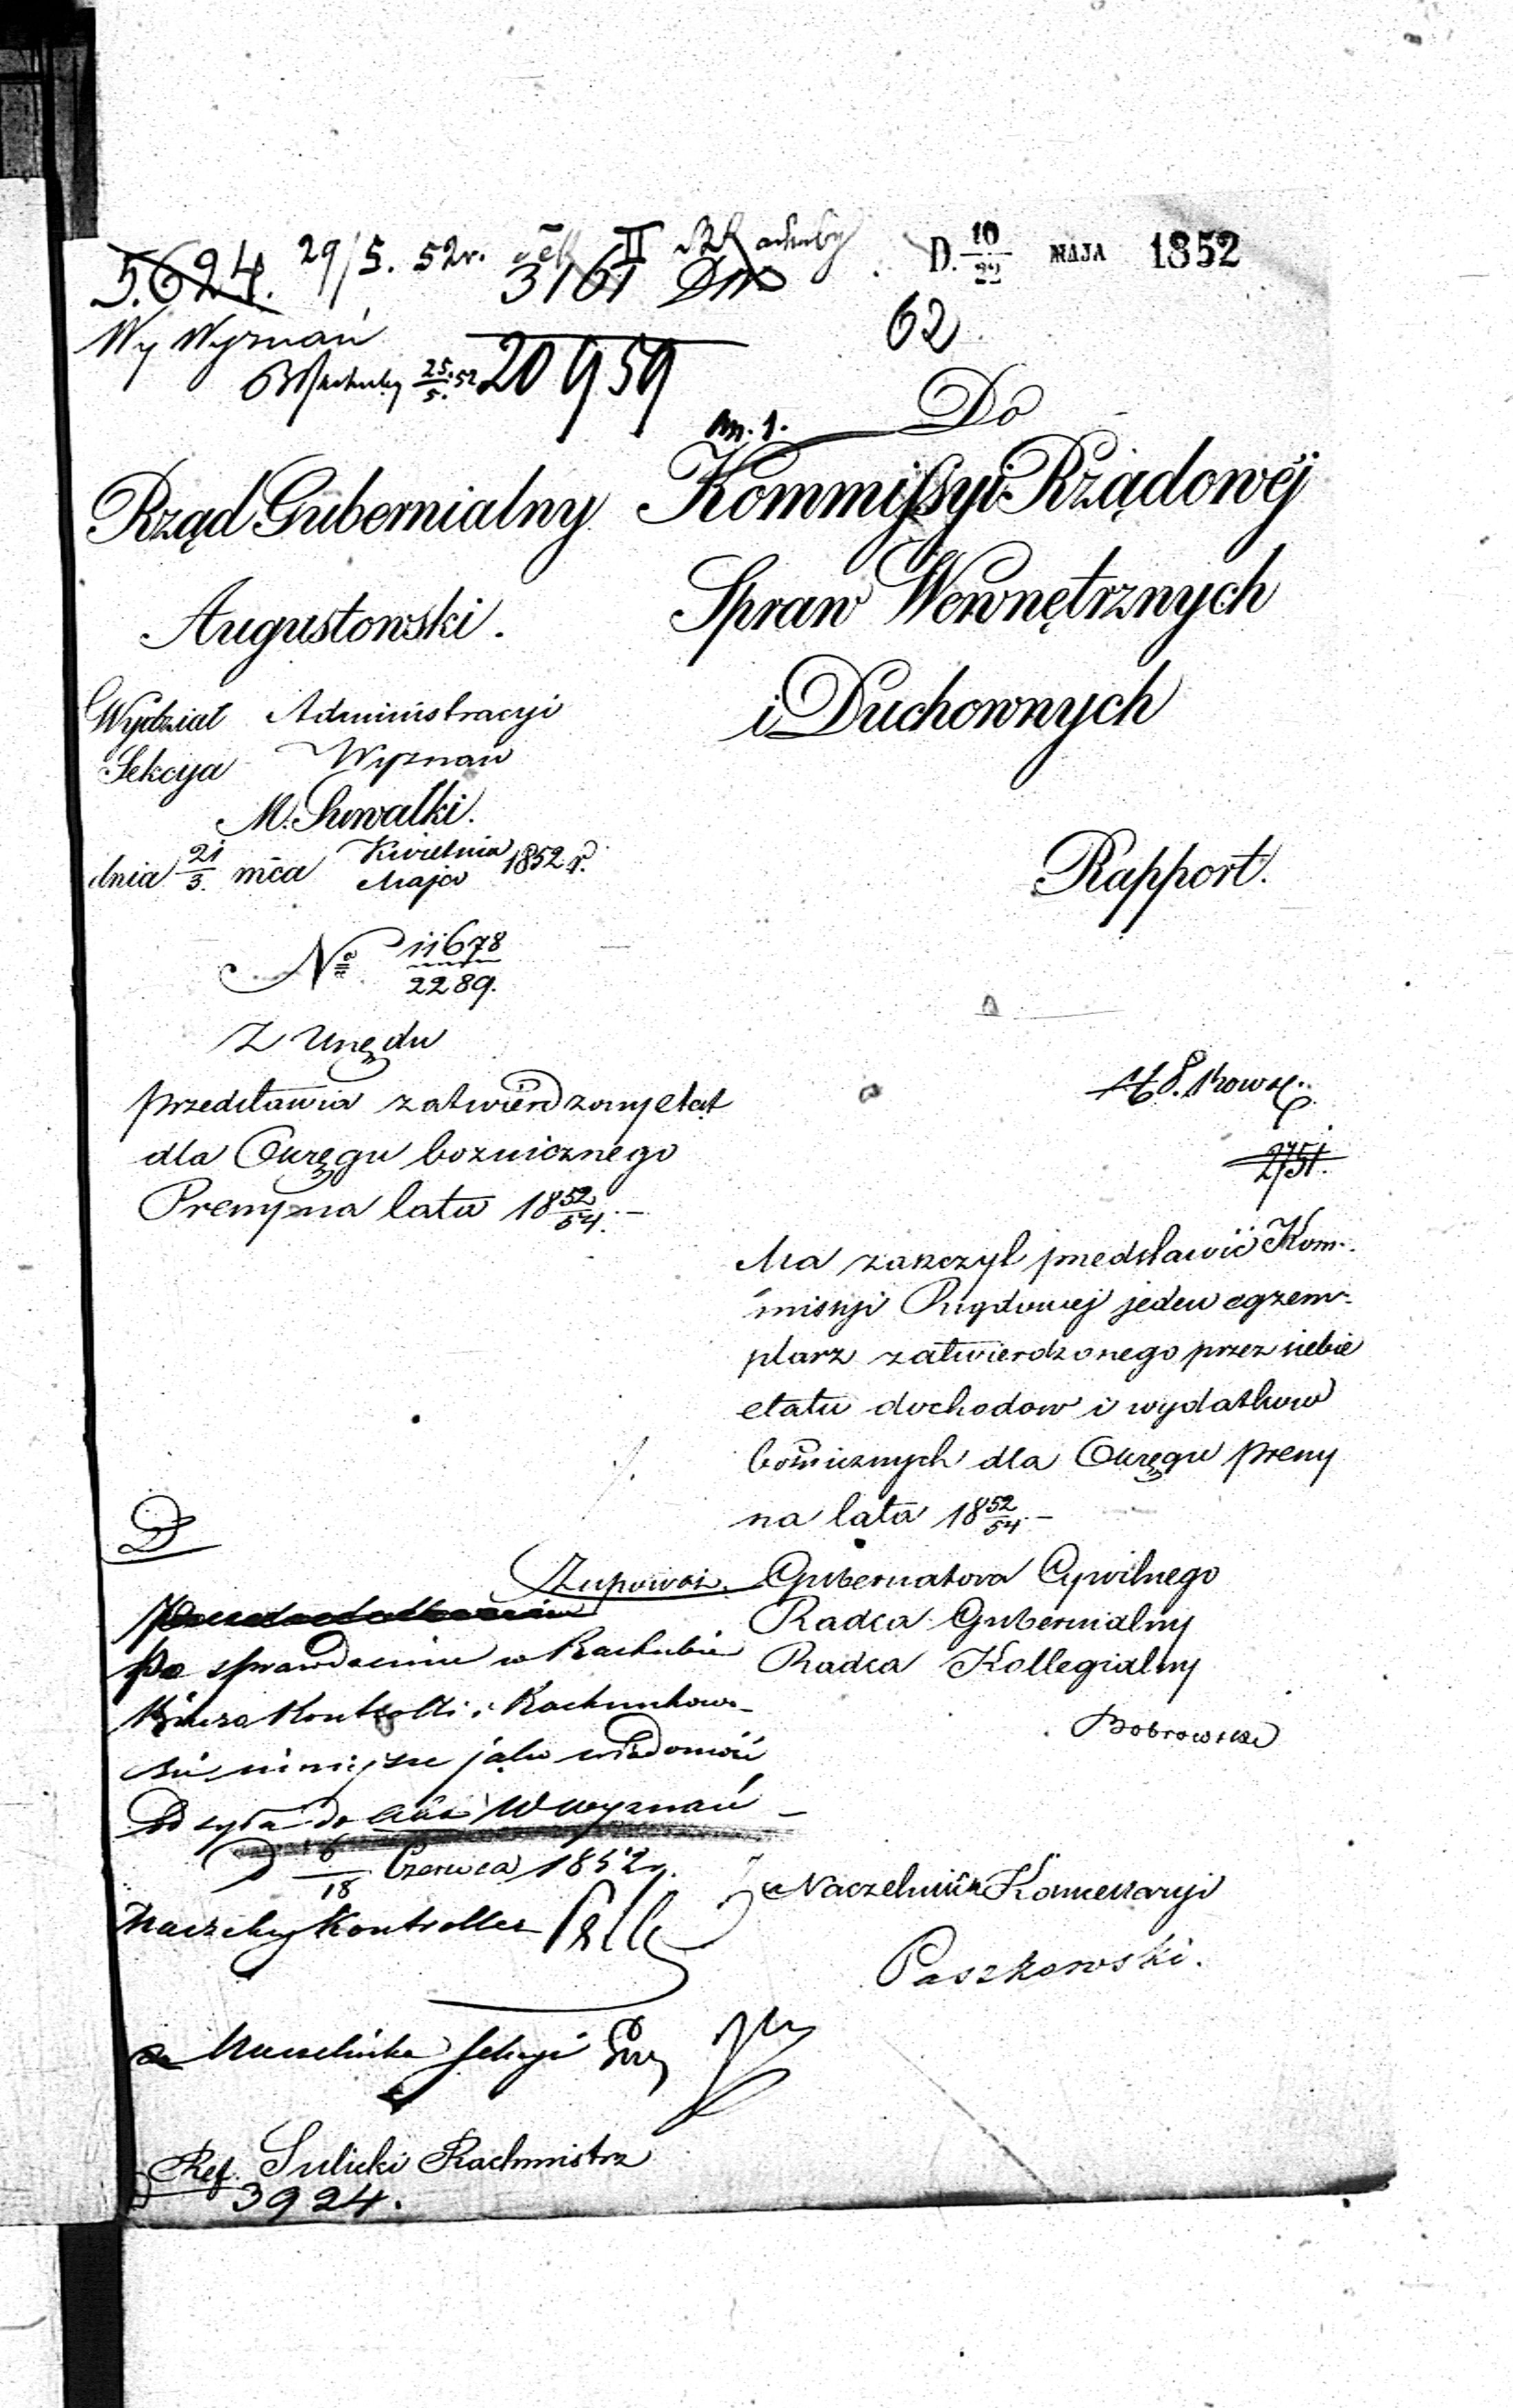 5.624. 29/5. 52r. II D. 10/22 MAJA 1852
3161
Wy Wyznań 62
25/5. 52 20959
Do
Rząd Gubernialny
Augustowski.
Kommissyi Rządowéj
Spraw Wewnętrznych
i Duchownych
Wydział Administracyi
Sekcya Wyznań
M. Suwałki.
dnia 21/3. mca Kwietnia/Maja 1852 r.
Rapport.
No 11678/2289.
Z Urzędu
przedstawia zatwierdzony etat
dla Okręgu bożnicznego
Preny na lata 18 52/54. –
2751.
Ma zaszczyt przedstawić Kom-
missyi Rządowej jeden egzem-
plarz zatwierdzonego przez siebie
etatu dochodow i wydatkow
bożnicznych dla Okręgu Preny
na lata 18 52/54. –
Z upoważ. Gubernatora Cywilnego
Radca Gubernialny
Radca Kollegialny
Bobrowski
Po sprawdzeniu w Rachubie
Biura Kontrolli i Rachunkowo-
ści niniejsze jako wiadomość
Odsyła do Wyznań –
D 6/18 Czerwca 1852 r.
Naczelny Kontroller
za Naczelnika Sekcyi
Ref. Sulicki Rachmistrz
3924.
Naczelnik Kancellaryi
Paszkowski.